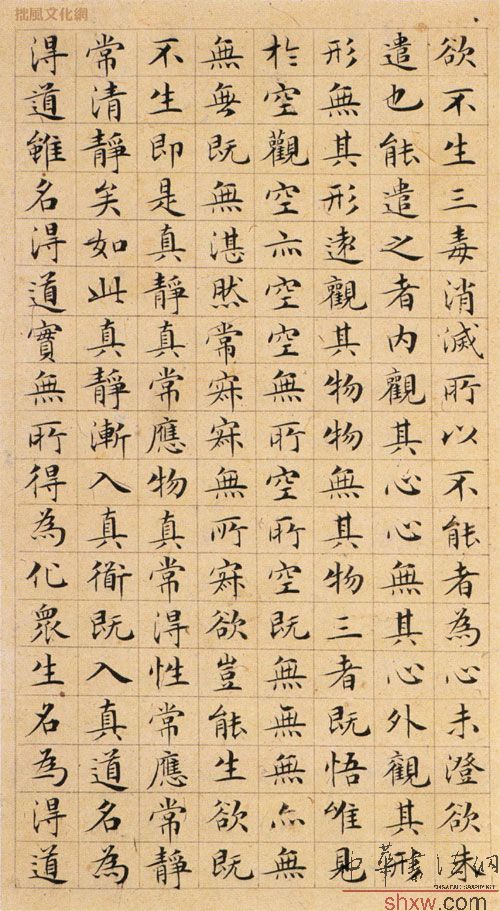 拙風文化網
欲不生三毒消滅所以不能者為心未澄欲未
遣也能遣之者內觀其心心無其心外觀其形
形無其形遠觀其物物無其物三者既悟唯見
於空觀空亦空空無所空所空既無無無亦無
無無既無湛然常寂寂無所寂欲豈能生欲既
不生即是真靜真常應物真常得性常應常靜
常清靜矣如此真靜漸入真衜既入真道名為
得道雖名得道實無所得為化眾生名為得道
中華書法網
shxw.com